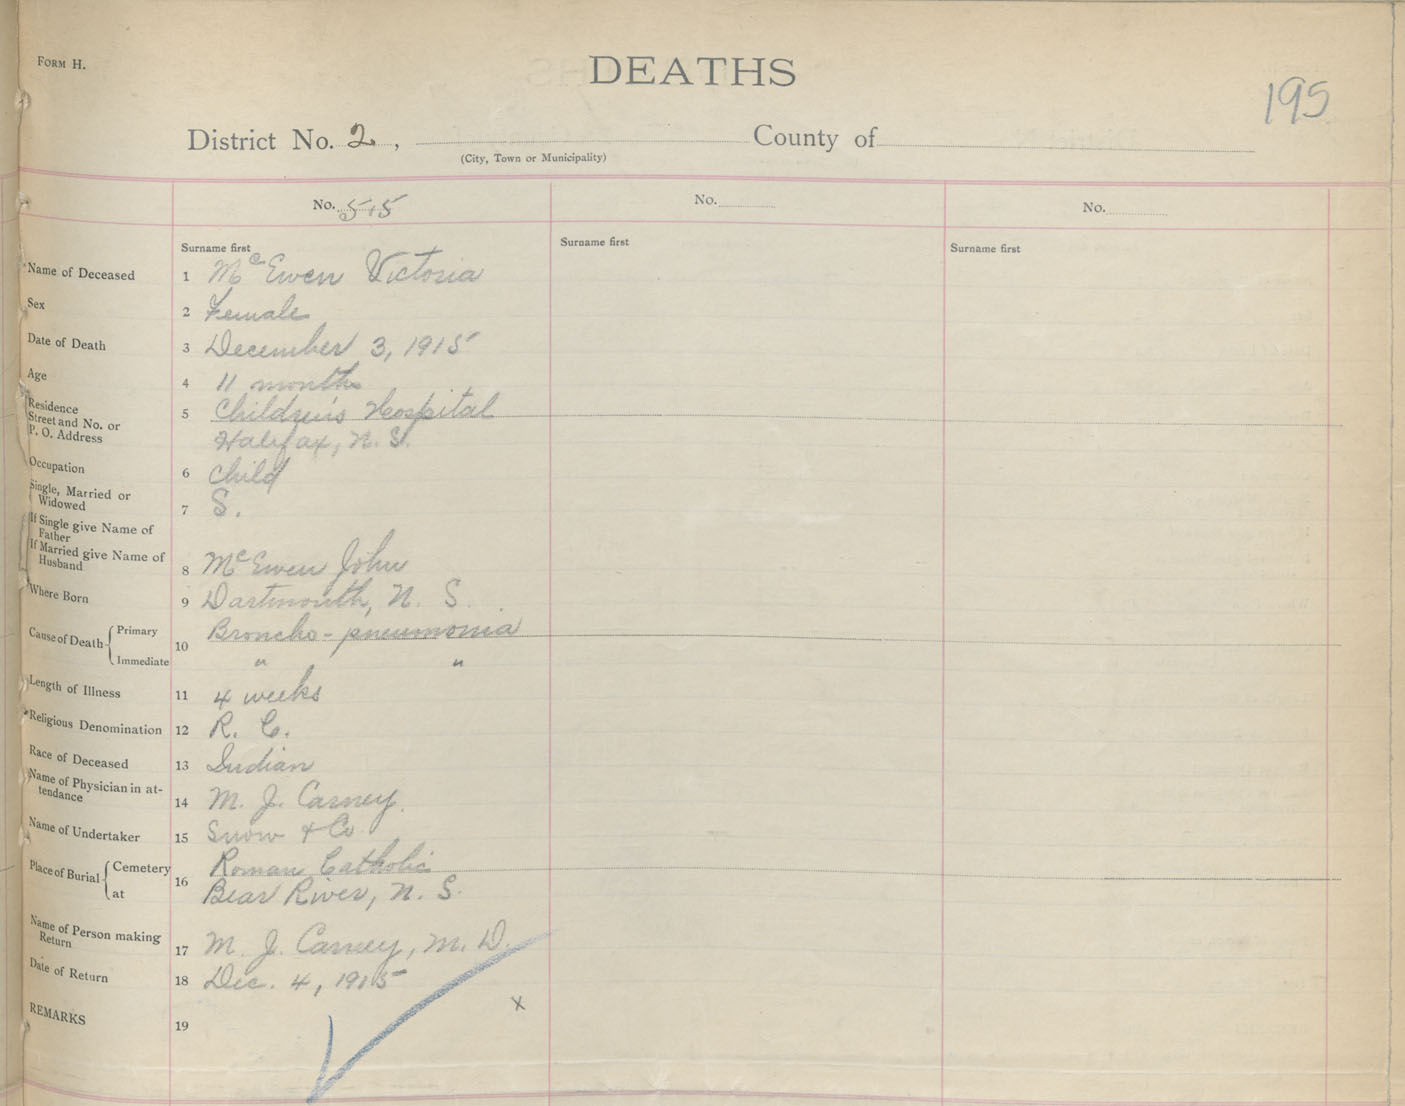 FORM H.
DEATHS
195
District No. 2, County of
(City, Town or Municipality)
No. 515 No. No.
Surname first Surname first Surname first
Name of Deceased 1 McEwen Victoria
Sex 2 Female
Date of Death 3 December 3, 1915
Age 4 11 months
Residence
Street and No. or 5 Children's Hospital
P. O. Address Halifax, N. S.
Occupation 6 Child
Single, Married or
Widowed 7 S.
If Single give Name of
Father
If Married give Name of
Husband 8 McEwen John
Where Born 9 Dartmouth, N. S.
Cause of Death { Primary 10 Broncho-pneumonia
Immediate " "
Length of Illness 11 4 weeks
Religious Denomination 12 R. C.
Race of Deceased 13 Indian
Name of Physician in at-
tendance 14 M. J. Carney.
Name of Undertaker 15 Snow & Co
Place of Burial { Cemetery 16 Roman Catholic
at Bear River, N. S.
Name of Person making
Return 17 M. J. Carney, M. D.
Date of Return 18 Dec. 4, 1915
x
REMARKS 19